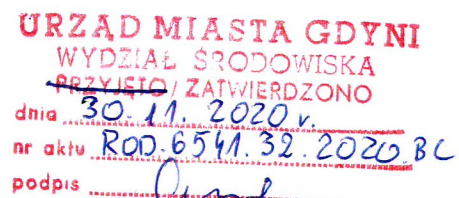 URZĄD MIASTA GDYNI
WYDZIAŁ ŚRODOWISKA
PRZYJĘTO / ZATWIERDZONO
dnia 30.11.2020 r.
nr aktu ROD.6541.32.2020.BC
podpis